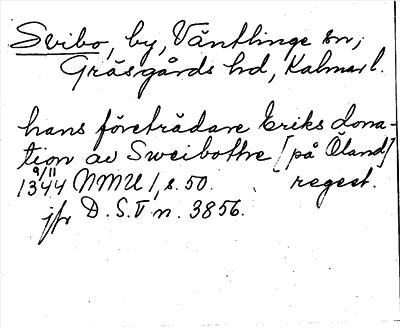 Svibo, by, Ventlinge sn,
Gräsgårds hd, Kalmar l.
hans företrädare Eriks dona-
tion av Sweibothre [på Öland]
9/11 1344 NMU 1, s. 50. regest.
jfr D.S. V n. 3856.